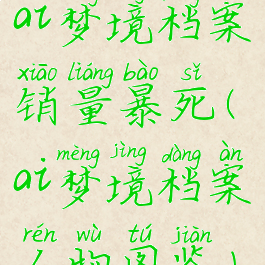 ai梦境档案
xiāo liáng bào sǐ
销量暴死(
mèng jìng dàng àn
ai梦境档案
rén wù tú jiàn
人物图鉴)